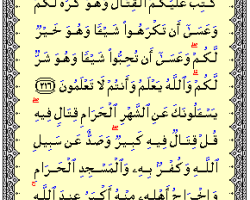 كُتِبَ عَلَيْكُمُ ٱلْقِتَالُ وَهُوَ كُرْهٌ لَّكُمْ
وَعَسَىٰٓ أَن تَكْرَهُوا۟ شَيْـًٔا وَهُوَ خَيْرٌ
لَّكُمْ ۖ وَعَسَىٰٓ أَن تُحِبُّوا۟ شَيْـًٔا وَهُوَ شَرٌّ
لَّكُمْ ۗ وَٱللَّهُ يَعْلَمُ وَأَنتُمْ لَا تَعْلَمُونَ ﴿٢١٦﴾
يَسْـَٔلُونَكَ عَنِ ٱلشَّهْرِ ٱلْحَرَامِ قِتَالٍ فِيهِ ۖ
قُلْ قِتَالٌ فِيهِ كَبِيرٌ ۖ وَصَدٌّ عَن سَبِيلِ
ٱللَّهِ وَكُفْرٌۢ بِهِۦ وَٱلْمَسْجِدِ ٱلْحَرَامِ
وَإِخْرَاجُ أَهْلِهِۦ مِنْهُ أَكْبَرُ عِندَ ٱللَّهِ ۚ